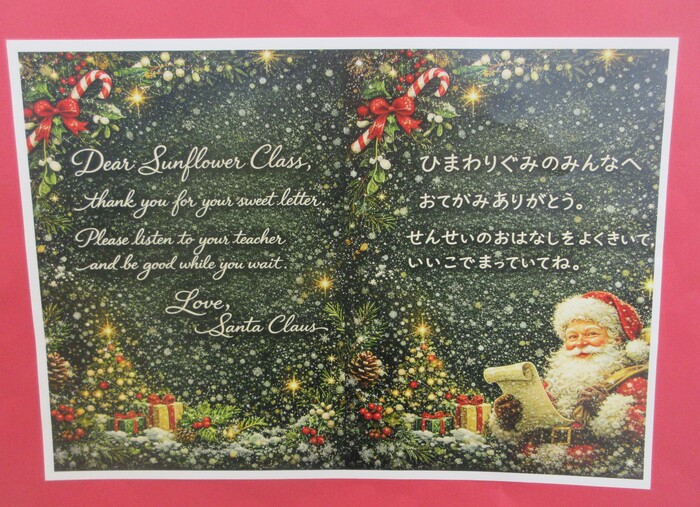 Dear Sunflower Class,
thank you for your sweet letter.
Please listen to your teacher
and be good while you wait.
Love,
Santa Claus
ひまわりぐみのみんなへ
おてがみありがとう。
せんせいのおはなしをよくきいて、
いいこでまっていてね。